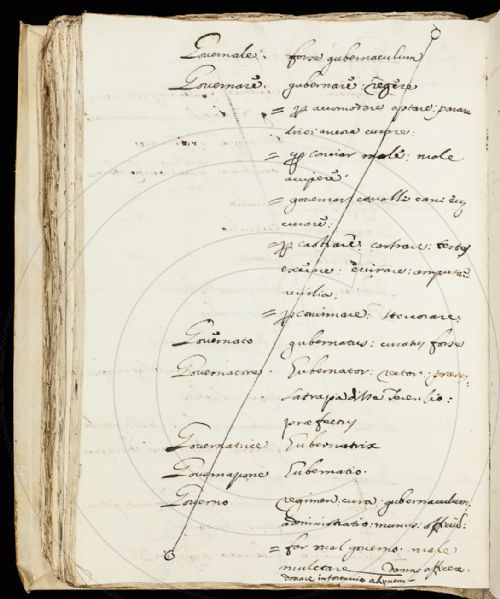 Governale. forse gubernaculum
Governare. gubernare regere
= p accomodare aptare: parare
curare:
= p conciar male: male
accipere
= governar cavalli cani
curare:
= p castrare: castrare: testes
evirare: amputare
virilia:
= p concimare: stercorare:
Governato gubernatus: curatus forse
Governatore. Gubernator: rector: praeses
Satrapa
praefectus
Governatrice Gubernatrix
Governazione Gubernatio.
Governo regimen, cura: gubernaculum:
administratio: munus:
= far mal governo. male
mulctare damno afficere.